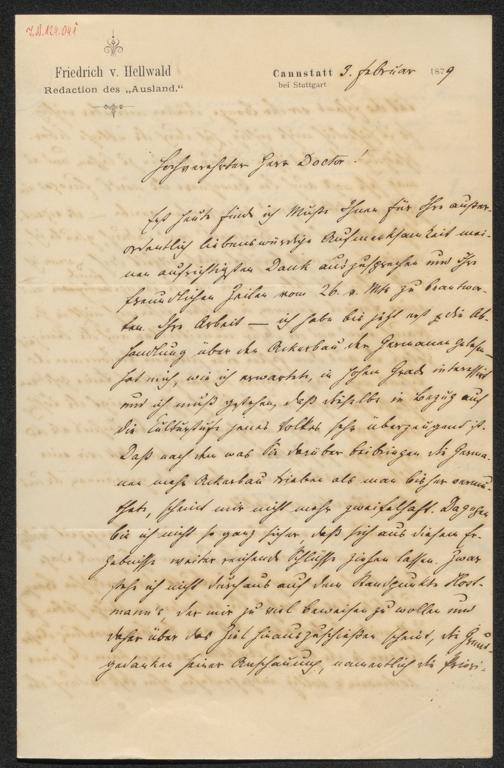 I.N. 124.041
Friedrich v. Hellwald
Redaction des „Ausland.“
Cannstatt 3. Februar 1879
bei Stuttgart
Hochverehrter Herr Doctor!
Erst heute finde ich Muße Ihnen für Ihre außer-
ordentlich liebenswürdige Aufmerksamkeit mei-
nen aufrichtigsten Dank auszusprechen und Ihre
freundlichen Zeilen vom 26. v. Mts zu beantwor-
ten. Ihre Arbeit – ich habe bis jetzt erst die Ab-
handlung über den Ackerbau der Germanen gelesen
hat mich, wie ich erwartete, in hohem Grade interessirt
und ich muß gestehen, daß dieselbe in Bezug auf
die Culturstufe jenes Volkes sehr überzeugend ist.
Daß nach dem was Sie darüber beibringen die Germa-
nen mehr Ackerbau trieben als man bisher vermu-
thete, scheint mir nicht mehr zweifelhaft. Dagegen
bin ich nicht so ganz sicher, daß sich aus diesem Er-
gebnisse weiter reichende Schlüsse ziehen lassen. Zwar
stehe ich nicht durchaus auf dem Standpunkte
der mir zu viel beweisen zu wollen und
daher über das Ziel hinauszuschießen scheint, die Grund-
gedanken seiner Anschauung, namentlich die Priori-